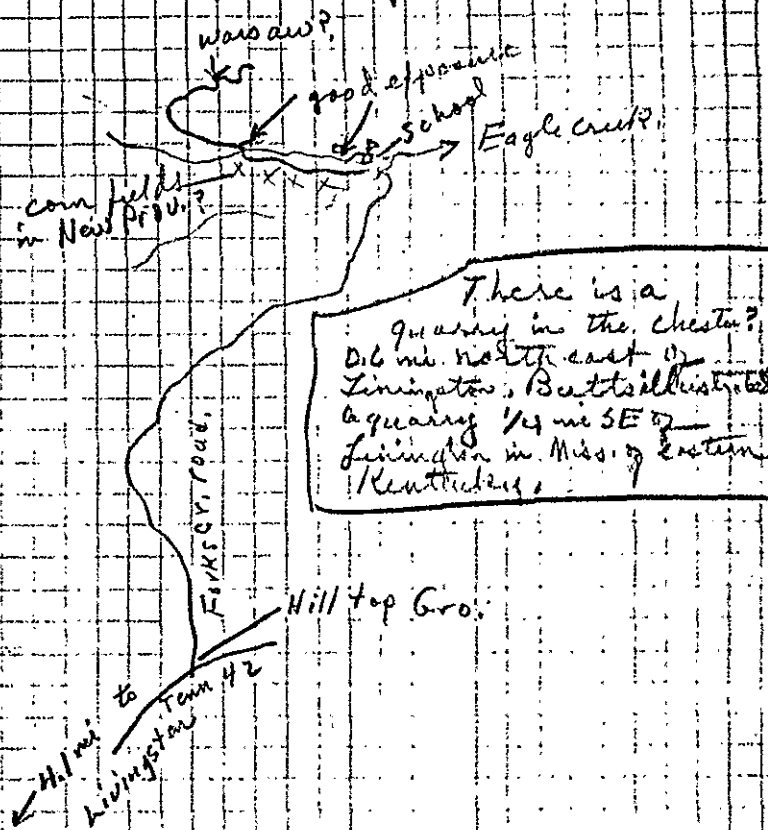 Warsaw?
good exposure
School
Eagle creek.
corn fields
in New Prov.?
There is a
quarry in the Chester?
0.6 mi. north east of
Butts illustrated
a quarry 1/4 mi SE of
in Miss. of eastern
Kentucky.
Forks Cr. road.
Hill top Gro.
Tenn 42
mi to
Livingston